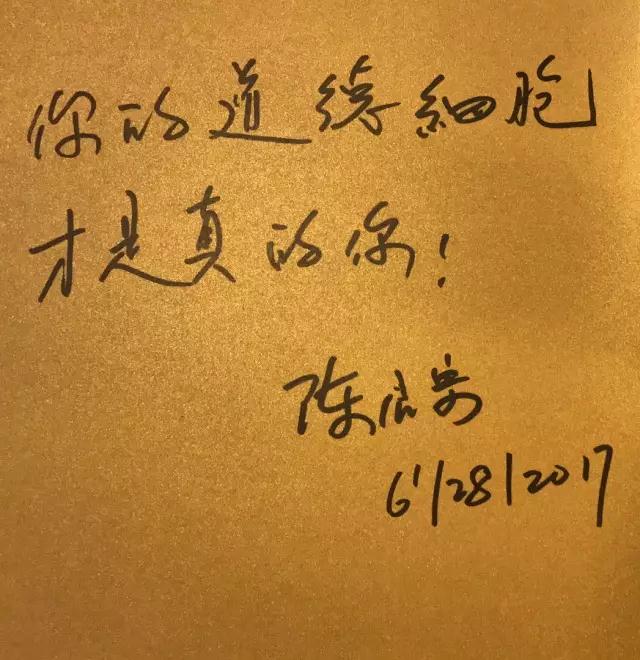 你的道德細胞
才是真的你!
陈启宗
6/28/2017